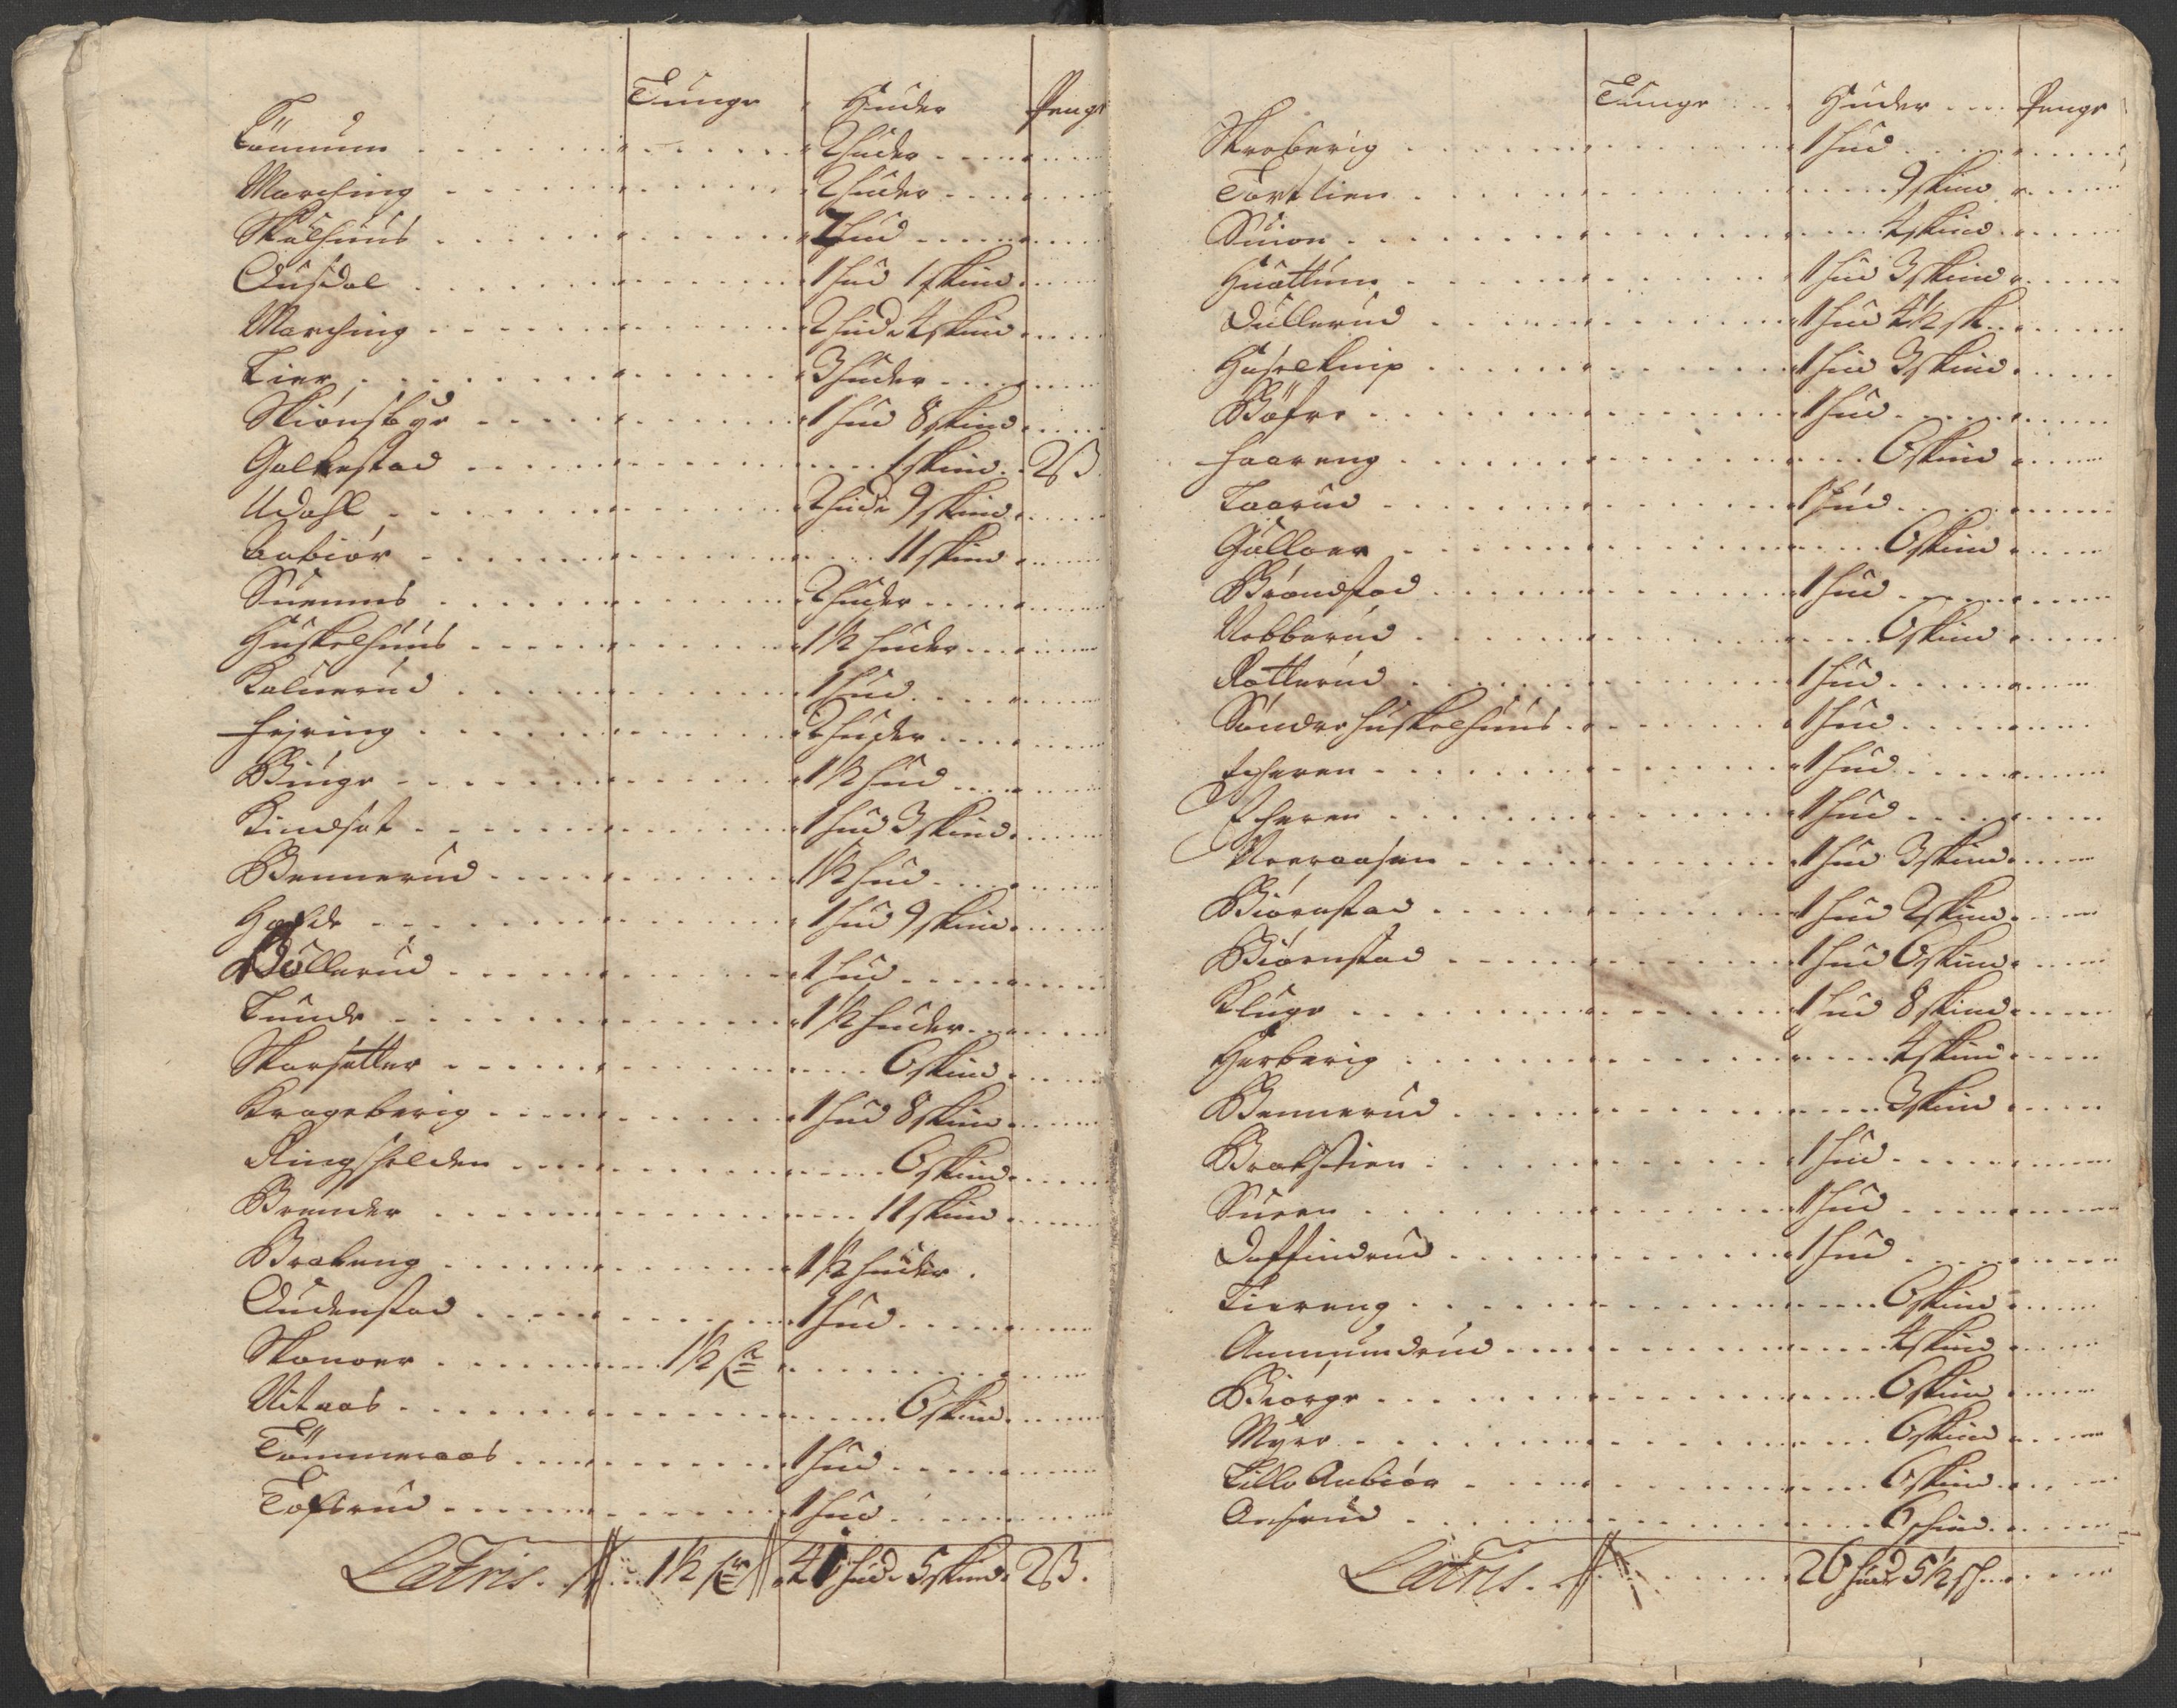 Tunge Huder Penge
Tømmum 2 huder
Marching 2 huder
Skulhuus 2 hud
Ousdal 1 hud 1 skind
Marching 2 hude 4 skind
Lier 3 huder
Skiønsbye 1 hud 8 skind
Galkestad 1 skind 2 ß
Udahl 2 hude 9 skind
Aabiør 11 skind
Suennes 2 huder
Huskelhuus 1½ huder
Kaluerud 1 hud
Hejring 2 huder
Binge 1½ hud
Kindset 1 hud 3 skind
Bennerud 1½ hud
Holde 1 hud 9 skind
Døllerud 1 hud
Lunde 1½ huder
Skarsetter 6 skind
Krageberig 1 hud 8 skind
Ringsholden 6 skind
Brender 11 skind
Brateng 1½ huder
Oudenstad 1 hud
Skonoer 1½
Vitaas 6 skind
Tømmeraas 1 hud
Tofsrud 1 hud
Latris 1½ 41 hude 5 skind 2 ß
Tunge Huder Penge
Skraberig 1 hud
Tortlien 9 skind
Snion 4 skind
Huattum 1 hud 3 skind
Dullerud 1 hud 4½ sk
Haselknip 1 hud 3 skind
Bøfre 1 hud
Haareng 6 skind
Taarud 1 hud
Gulloer 6 skind
Brandstad 1 hud
Nabberud 6 skind
Rotterud 1 hud
Søndre Huskelhuus 1 hud
Echeren 1 hud
Echeren 1 hud
Noeraasen 1 hud 3 skind
Biørnstad 1 hud 2 skind
Biørnstad 1 hud 6 skind
Kluge 1 hud 8 skind
Herberig 4 skind
Bennerud 3 skind
Bratstien 1 hud
Sueen 1 hud
Doffindrud 1 hud
Liereng 6 skind
Aammundrud 4 skind
Biørge 6 skind
Myre 6 skind
Lille Aabiør 6 skind
6 skind
Latris 26 hude 5½ sk